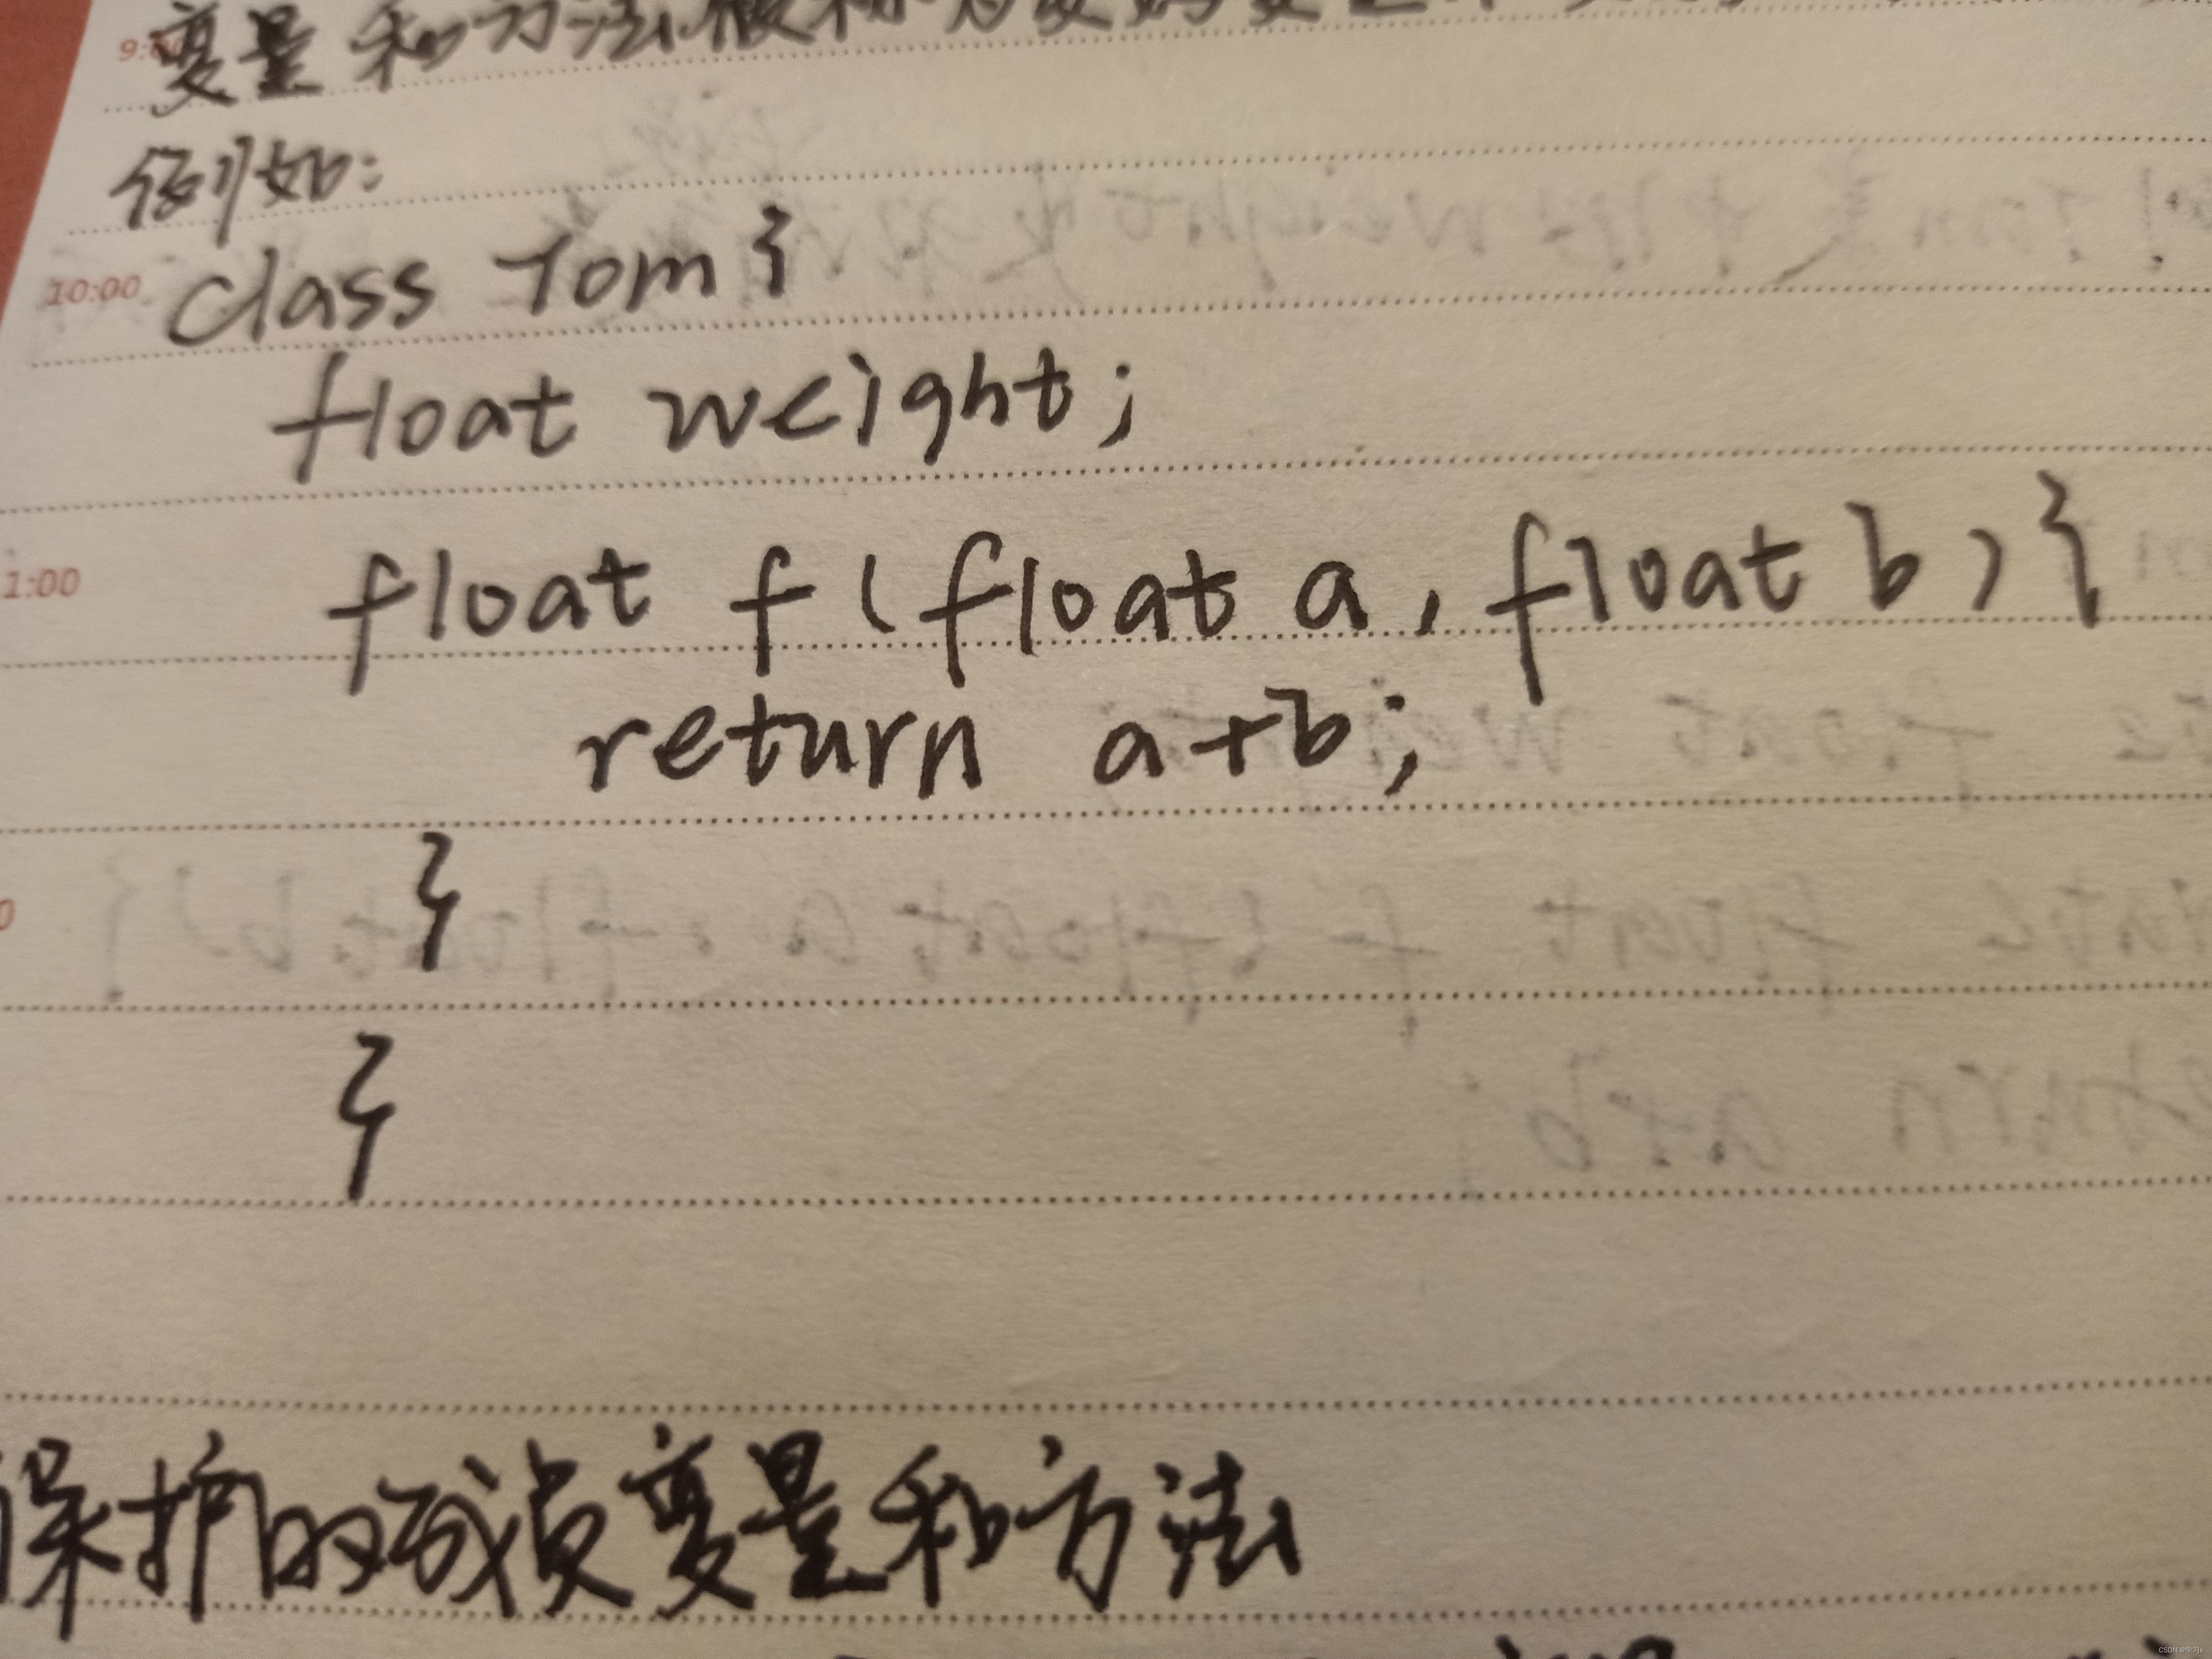 9:00 变量和方法被称为友好变量
例如:
10:00 class Tom {
float weight;
1:00 float f (float a, float b) {
return a+b;
}
}
保护的成员变量和方法
CSDN @学习x